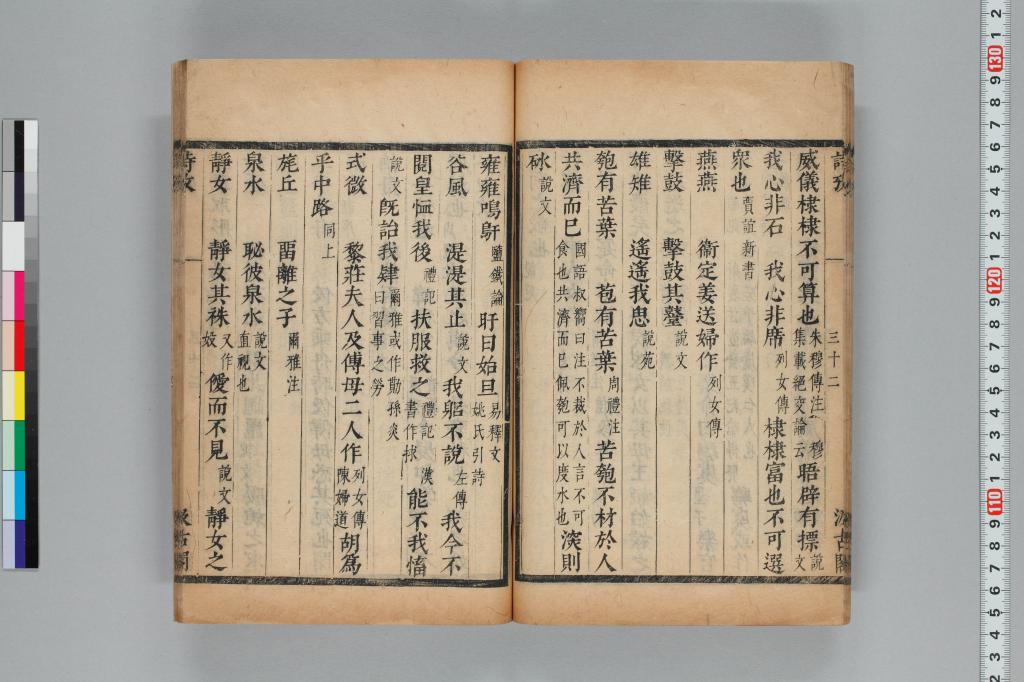 詩攷
三十二
汲古閣
威儀棣棣不可算也朱穆傳注穆集載絕交論云晤辟有摽說文
我心非石　我心非席列女傳棣棣富也不可選
衆也賈誼新書
燕燕　衞定姜送婦作列女傳
擊鼓　擊鼓其鼞說文
雄雉　遙遙我思說苑
匏有苦葉　苞有苦葉周禮注苦匏不材於人
共濟而已國語叔嚮曰注不裁於人言不可食也共濟而已佩匏可以度水也深則
砅說文
雍雍鳴鳱鹽鐵論旰日始旦易釋文姚氏引詩
谷風　湜湜其止說文我躬不說左傳我今不
閱皇恤我後禮記扶服救之禮記漢書作捄能不我慉
說文旣詒我肄爾雅或作勩孫炎曰習事之勞
式微　黎莊夫人及傅母二人作列女傳陳婦道胡爲
乎中路同上
旄丘　畱離之子爾雅注
泉水　毖彼泉水說文直視也
靜女　靜女其袾又作㛮僾而不見說文靜女之
詩攷
汲古閣